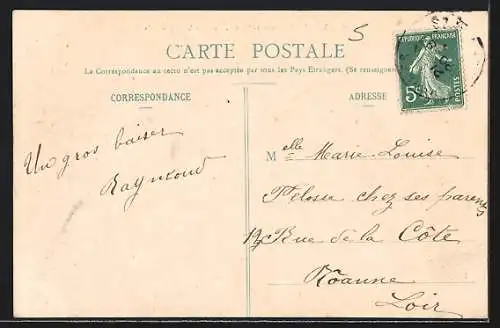 5
CARTE POSTALE
La Correspondance au recto n'est pas acceptée par tous les Pays Etrangers. (Se renseigner
REPUBLIQUE FRANÇAISE
5c POSTES
CORRESPONDANCE
ADRESSE
Un gros baiser
Raymond
Melle Marie-Louise
chez ses parents
Rue de la Côte
Roanne
Loir